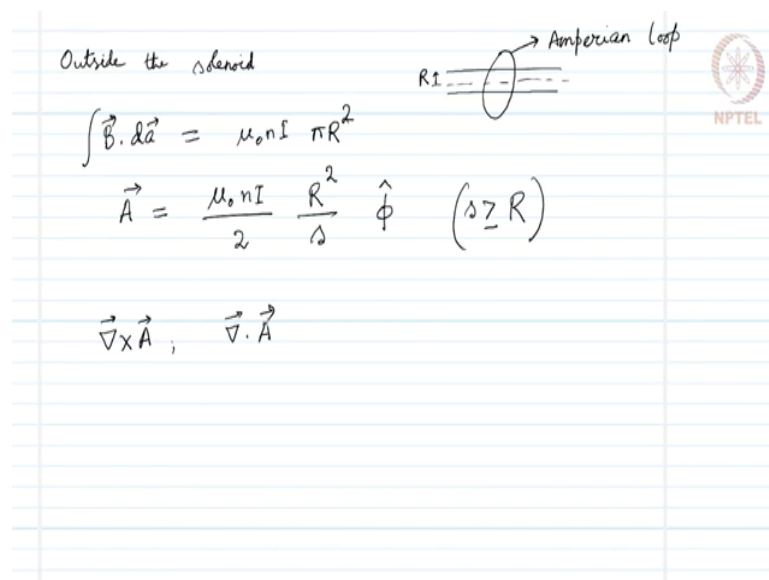 Outside the solenoid
→ Amperian loop
RI
NPTEL
∫ B⃗ . da⃗ = μ₀nI πR²
A⃗ = μ₀nI/2 R²/s ϕ̂ (s ≥ R)
∇⃗ x A⃗ , ∇⃗ . A⃗